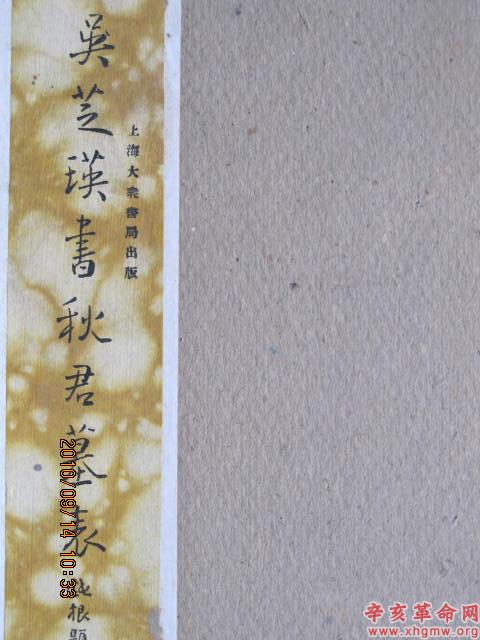 吳芝瑛書秋君墓表
上海大衆書局出版
根題
2010/09/14 10:33
辛亥革命网
www.xhgmw.org